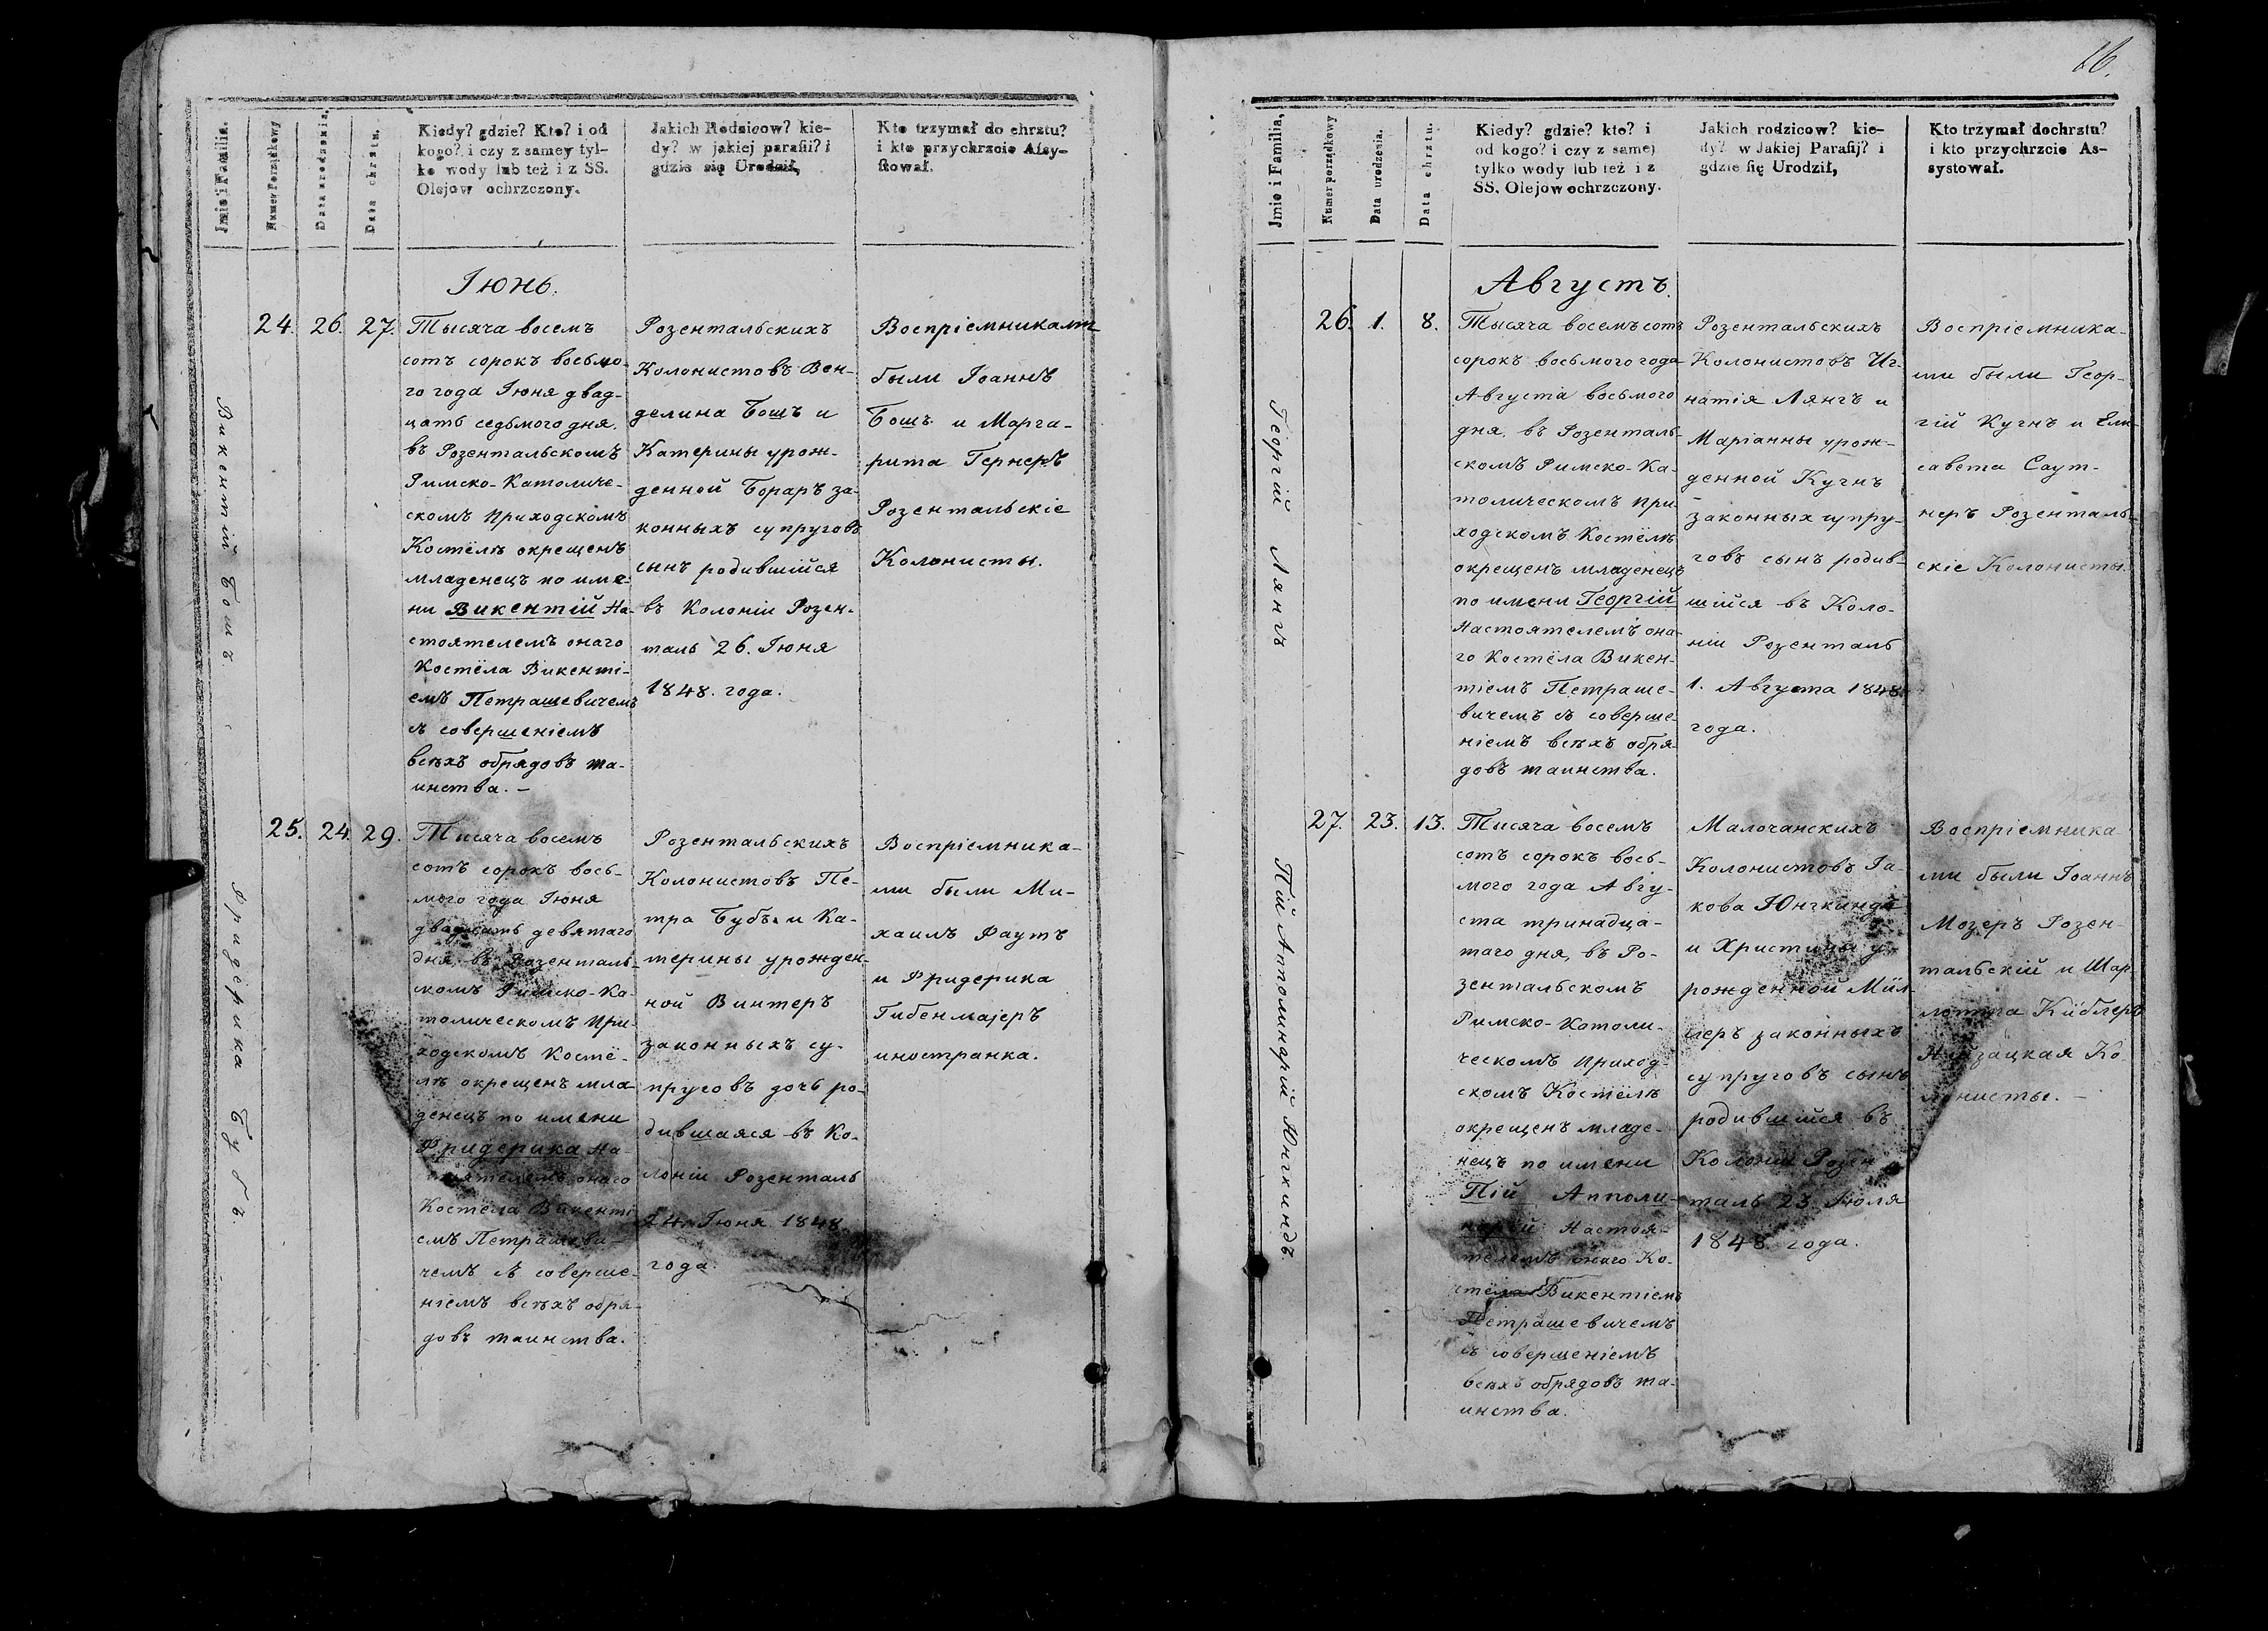 16.
Jmie i Familia.
Numer Porządkowy
Data urodzenia.
Data chrztu.
Kiedy? gdzie? Kto? i od
kogo? i czy z samey tyl-
ko wody lub też i z SS.
Olejow ochrzczony.
Jakich Rodzicow? kie-
dy? w jakiej parafii? i
gdzie się Urodził,
Kto trzymał do chrztu?
i kto przychrzcie Assy-
stował.
Викентій Бошъ
Іюнь.
24. 26. 27.
Тысяча восемъ
сотъ сорокъ восьмо-
го года Іюня двад-
цать седьмого дня.
въ Розентальскомъ
Римско-Католиче-
скомъ Приходскомъ
Костёлѣ окрещенъ
младенецъ по име-
ни Викентій На-
стоятелемъ онаго
Костёла Викенті-
емъ Петрашевичемъ
съ совершеніемъ
всѣхъ обрядовъ та-
инства. –
Розентальскихъ
Колонистовъ Вен-
делина Бошъ и
Катерины урож-
денной Бораръ за-
конныхъ супруговъ
сынъ родившійся
въ Колоніи Розен-
таль 26. Іюня
1848. года.
Воспріемниками
были Іоаннъ
Бошъ и Марга-
рита Гернеръ
Розентальскіе
Колонисты.
Фридерика Бубъ.
25. 24. 29.
Тисяча восемъ
сотъ сорокъ вось-
мого года Іюня
двадцать девятаго
дня, въ Розенталь-
скомъ Римско-Ка-
толическомъ При-
ходскомъ Костё-
лѣ окрещенъ мла-
денецъ по имени
Фридерика На-
стоятелемъ онаго
Костёла Викенті-
емъ Петрашеви-
чемъ съ соверше-
ніемъ всѣхъ обря-
довъ таинства.
Розентальскихъ
Колонистовъ Пе-
тра Бубъ и Ка-
терины урожден-
ной Винтеръ
законныхъ су-
пруговъ дочь ро-
дившаяся въ Ко-
лоніи Розенталь
24. Іюня 1848.
года.
Воспріемника-
ми были Ми-
хаилъ Фаутъ
и Фридерика
Гибенмаjеръ
иностранка.
Jmie i Familia,
Numer porządkowy
Data urodzenia.
Data chrztu.
Kiedy? gdzie? kto? i
od kogo? i czy z samej
tylko wody lub też i z
SS. Olejow ochrzczony.
Jakich rodzicow? kie-
dy? w Jakiej Parafij? i
gdzie się Urodził,
Kto trzymał dochrztu?
i kto przychrzcie As-
systował.
Георгій Лянгъ
Августъ.
26. 1. 8.
Тысяча восемъ сотъ
сорокъ восьмого года
Августа восьмого
дня. въ Розенталь-
скомъ Римско-Ка-
толическомъ При-
ходскомъ Костёлѣ
окрещенъ младенецъ
по имени Георгій
Настоятелемъ она-
го Костёла Викен-
тіемъ Петраше-
вичемъ съ соверше-
ніемъ всѣхъ обря-
довъ таинства.
Розентальскихъ
Колонистовъ Иг-
натія Лянгъ и
Маріанны урож-
денной Кугнъ
законных супру-
говъ сынъ родив-
шійся въ Коло-
ніи Розенталь
1. Августа 1848.
года.
Воспріемника-
ми были Геор-
гій Кугнъ и Ели-
савета Саут-
неръ Розенталь-
скіе Колонисты.
Пій Апполинарій Юнгкиндъ.
27. 23. 13.
Тисяча восемъ
сотъ сорокъ вось-
мого года Авгу-
ста тринадца-
таго дня, въ Ро-
зентальскомъ
Римско-Католи-
ческомъ Приход-
скомъ Костёлѣ
окрещенъ младе-
нецъ по имени
Пій Апполи-
нарій Настоя-
телемъ онаго Ко-
стёла Викентіемъ
Петрашевичемъ
съ совершеніемъ
всѣхъ обрядовъ та-
инства.
Малочанскихъ
Колонистовъ Іа-
кова Юнгкиндъ
и Христины у-
рожденной Мил-
леръ законныхъ
супруговъ сынъ
родившійся въ
Колоніи Розен
таль 23 Іюля
1848. года.
Воспріемника-
ми были Іоаннъ
Мозеръ Розен-
тальскій и Шар-
лотта Киблеръ
Нейзацкая Ко
лонисты. –